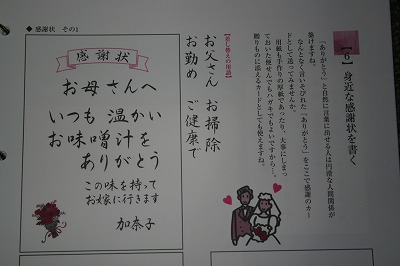 【6】身近な感謝状を書く
「ありがとう」と自然に言葉に出せる人は円滑な人間関係が
築けますね。
なんとなく言いそびれた「ありがとう」をここで感謝のカー
ドとして送ってみませんか。
用紙も手作りの厚紙であったり、大事にしまっ
ておいた便せんでもハガキでもよいですから…。
贈りものに添えるカードとしても使えますね。
【差し替えの用語】
お父さん お掃除
お勤め ご健康で
◆ 感謝状 その1
感謝状
お母さんへ
いつも 温かい
お味噌汁を
ありがとう
この味を持って
お嫁に行きます
加奈子